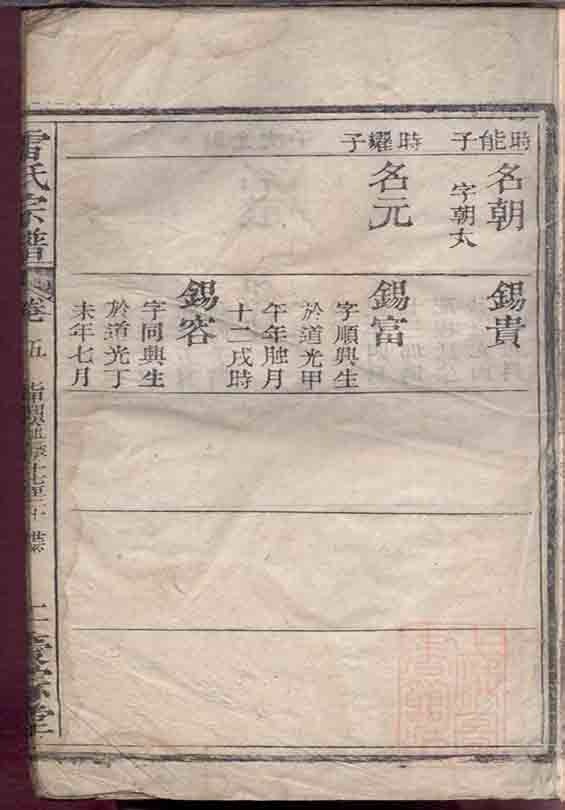 時能子
時耀子
名朝
字朝太
名元
錫貴
錫富
字順興生
於道光甲
午年肚月
十二戌時
錫容
字同興生
於道光丁
未年七月
雷氏宗譜
卷五